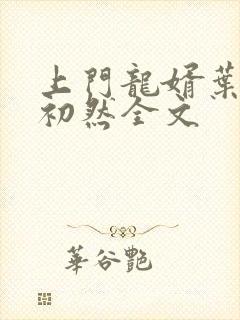 上門龍婿葉
初然全文
華谷艷